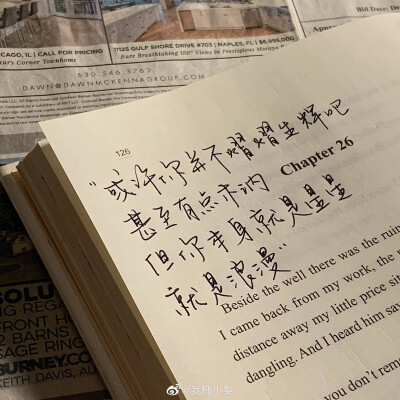 CAGO, IL | CALL FOR PRICING
xury Corner Townhome
11125 GULF SHORE DRIVE #703 | NAPLES, FL | $6,995,000
Rare Breathtaking 180° Views in Prestigious Moraya
Bid Date: De
630.546.3763
DAWN@DAWNMCKENNAGROUP.COM
126
“或许你并不熠熠生辉吧
甚至有点木讷
Chapter 26
但你本身就是星星
就是浪漫”
Beside the well there was the ruin
I came back from my work, the
distance away my little price sit
dangling. And I heard him say
you don't rem
SOLU
ING REGA
FRONT H
2 BARNS
SAGE RING
BURNEY.COM
KEITH DAVIS, AU